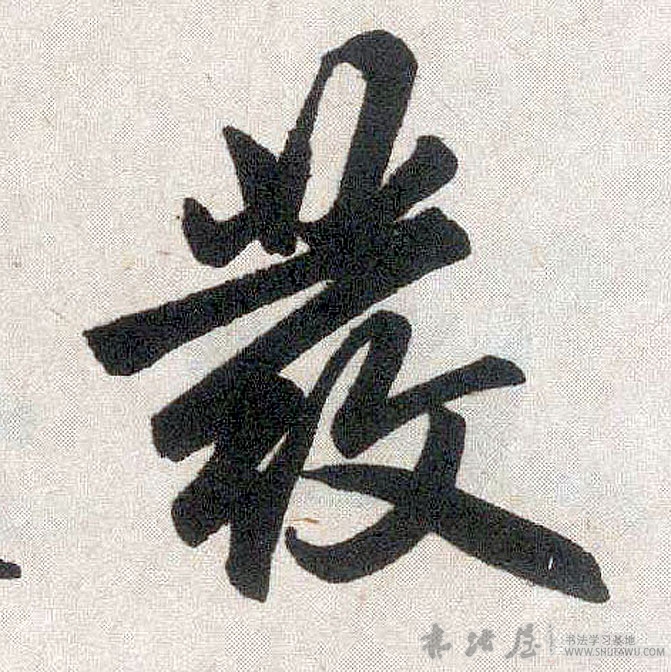 叢
书法屋
书法学习基地
WWW.SHUFAWU.COM